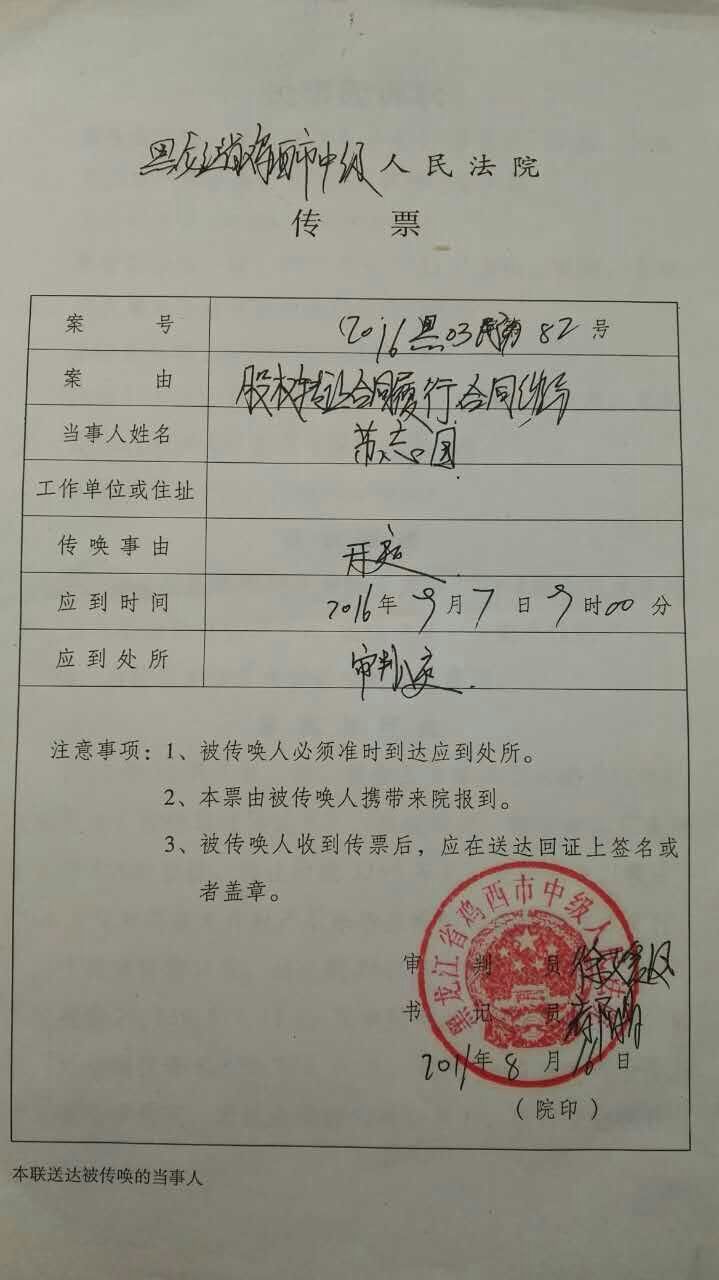 黑龙江省鸡西市中级人民法院
传票
案号 (2016黑03民初82号
案由 股权转让合同履行合同纠纷
当事人姓名 志国
工作单位或住址
传唤事由 开庭
应到时间 2016年9月7日9时00分
应到处所 审判庭
注意事项：1、被传唤人必须准时到达应到处所。
2、本票由被传唤人携带来院报到。
3、被传唤人收到传票后，应在送达回证上签名或
者盖章。
黑龙江省鸡西市中级人民法院
审判员 徐
书记员
2016年8月16日
（院印）
本联送达被传唤的当事人